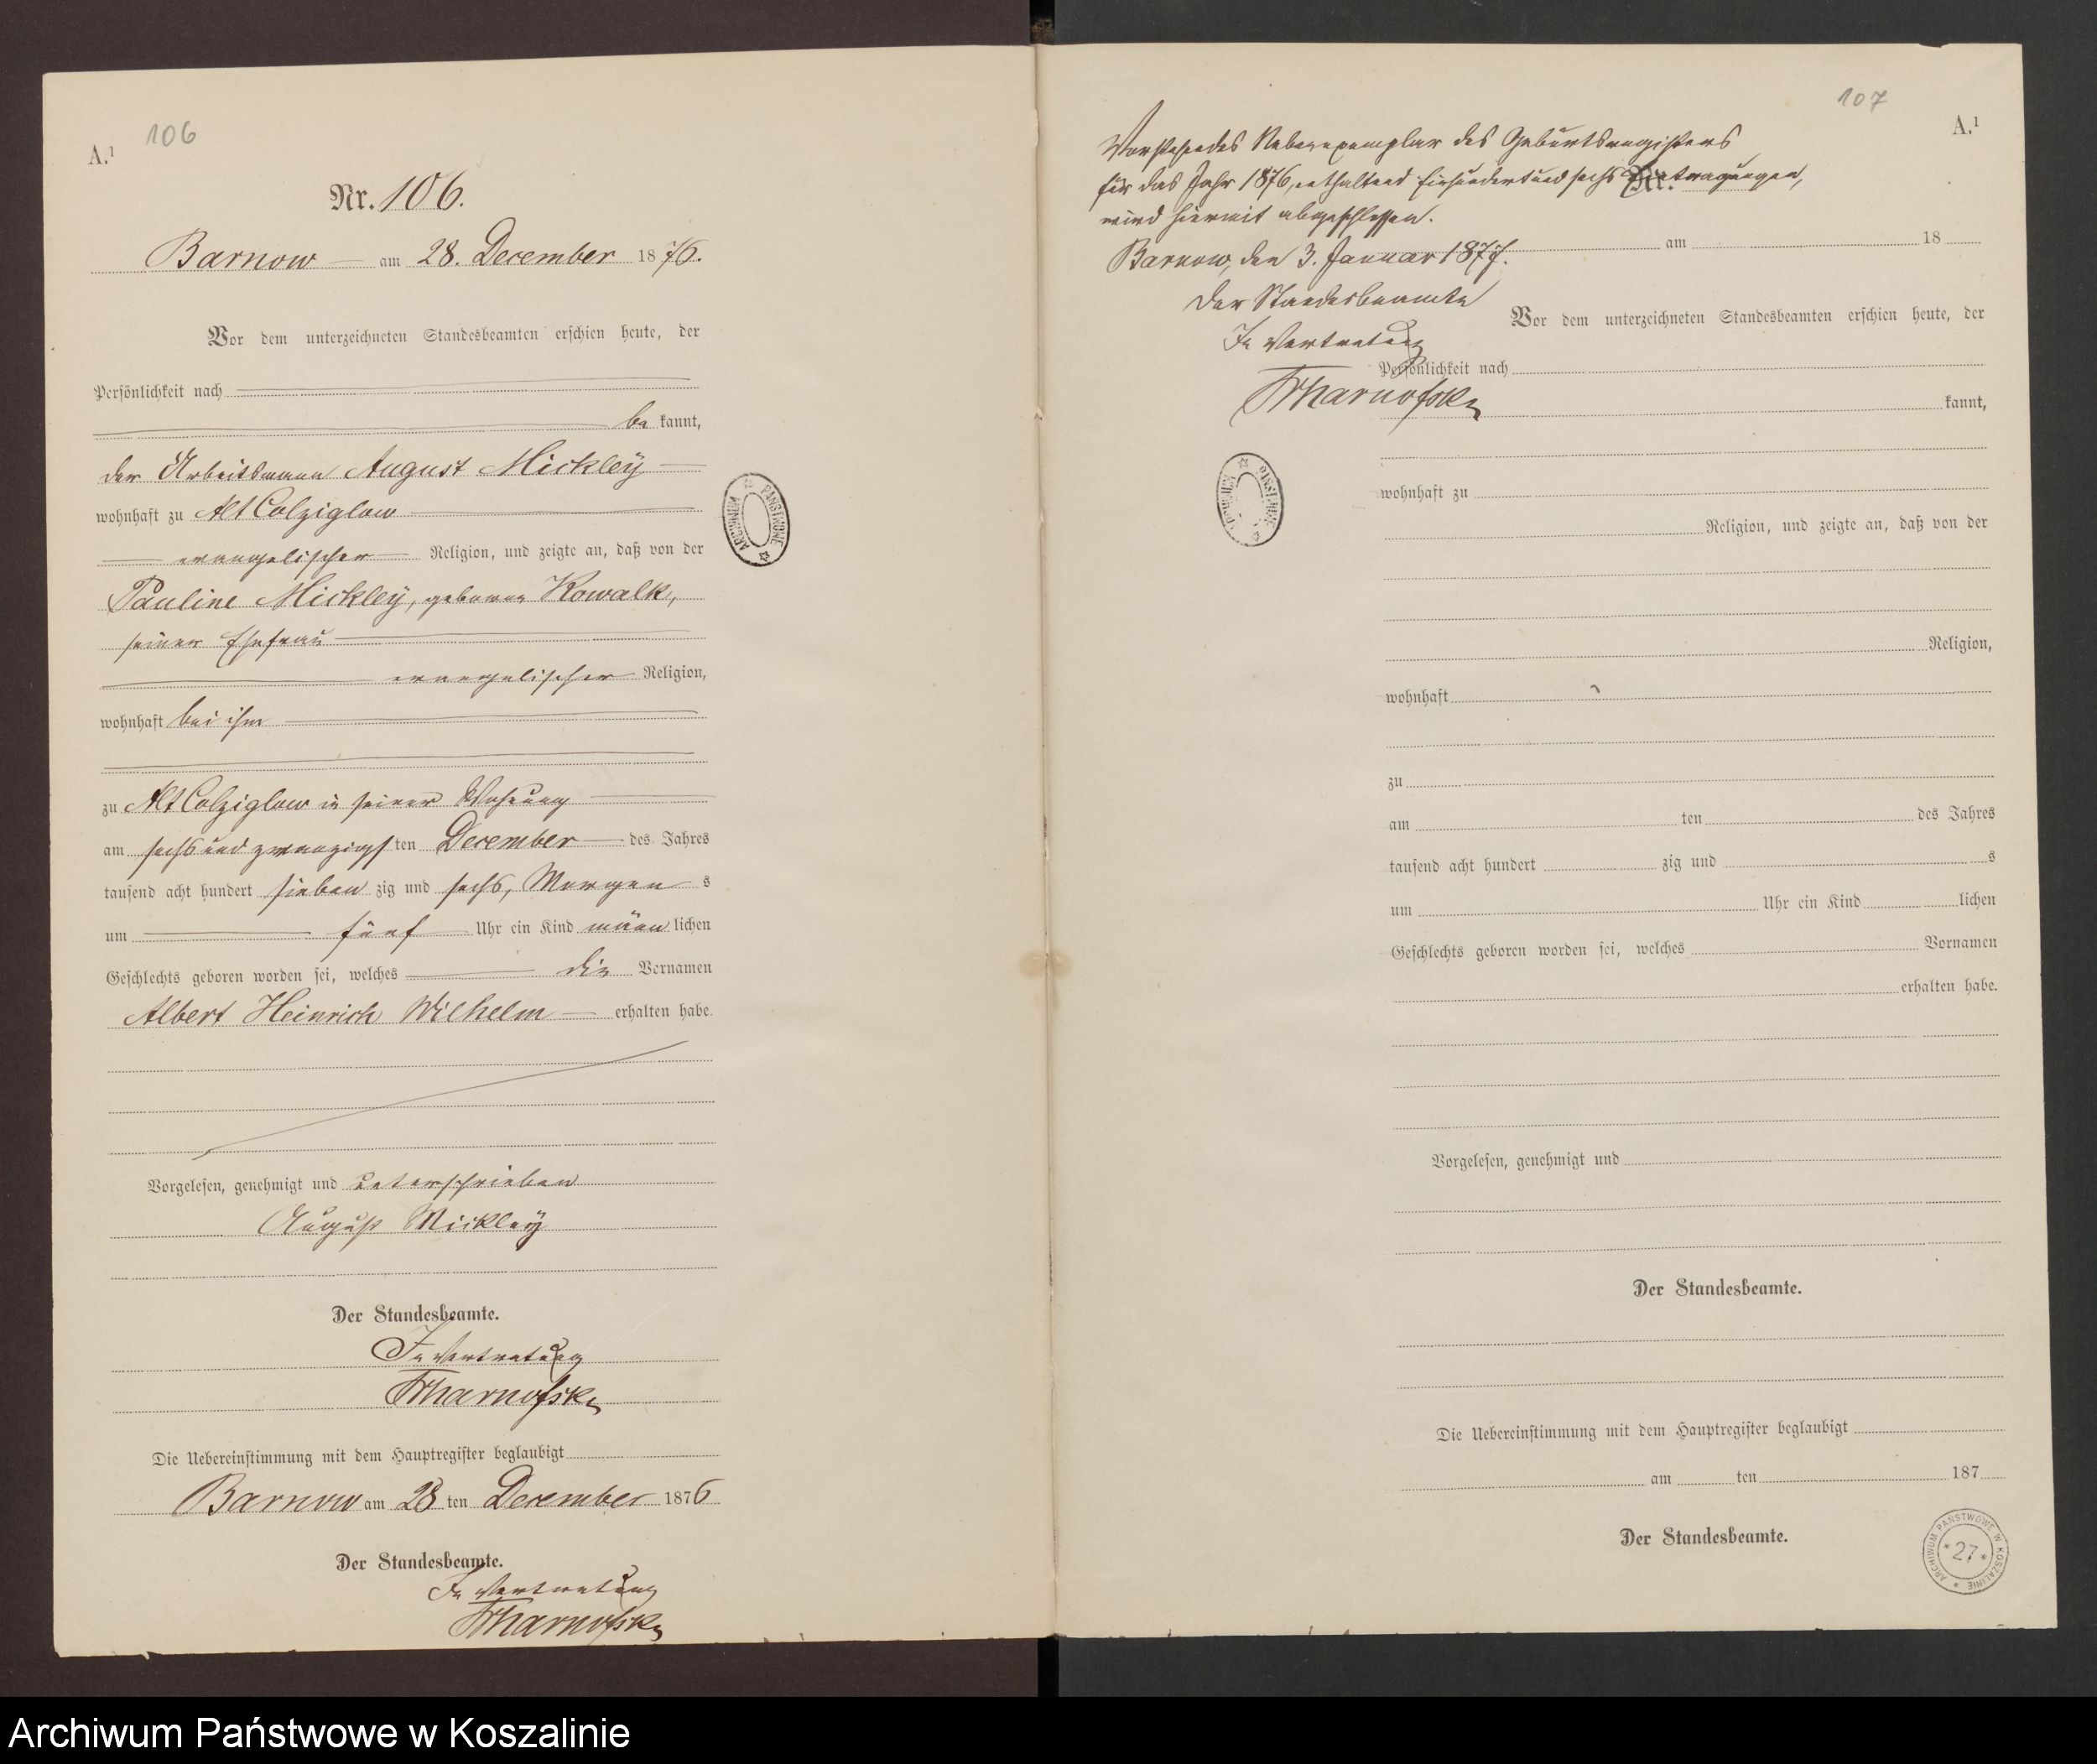 106
A.¹
Nr. 106.
Barnow am 28. December 1876.
Vor dem unterzeichneten Standesbeamten erschien heute, der
Persönlichkeit nach
be kannt,
der Arbeitsmann August Mickley
wohnhaft zu Alt Colziglow
evangelischer Religion, und zeigte an, daß von der
Pauline Mickley, geborne Kowalk,
seiner Ehefrau
evangelischer Religion,
wohnhaft bei ihm
zu Alt Colziglow in seiner Wohnung
am sechs und zwanzigsten December des Jahres
tausend acht hundert sieben zig und sechs, Morgens
um fünf Uhr ein Kind männ lichen
Geschlechts geboren worden sei, welches die Vornamen
Albert Heinrich Wilhelm erhalten habe.
Vorgelesen, genehmigt und unterschrieben
August Mickley
Der Standesbeamte.
In Vertretung
Die Uebereinstimmung mit dem Hauptregister beglaubigt
Barnow am 28 ten December 1876
Der Standesbeamte.
In Vertretung
ARCHIWUM PAŃSTWOWE
107
A.¹
Vorstehendes Nebenexemplar des Geburtsregisters
für das Jahr 1876, enthaltend Einhundert und sechs Eintragungen,
Nr.
wird hiermit abgeschlossen.
am 18
Barnow, den 3. Januar 1877.
Der Standesbeamte
Vor dem unterzeichneten Standesbeamten erschien heute, der
In Vertretung
Persönlichkeit nach
kannt,
wohnhaft zu
Religion, und zeigte an, daß von der
Religion,
wohnhaft
zu
am ten des Jahres
tausend acht hundert zig und s
um Uhr ein Kind lichen
Geschlechts geboren worden sei, welches Vornamen
erhalten habe.
Vorgelesen, genehmigt und
Der Standesbeamte.
Die Uebereinstimmung mit dem Hauptregister beglaubigt
am ten 187
Der Standesbeamte.
ARCHIWUM PAŃSTWOWE W KOSZALINIE
*27*
Archiwum Państwowe w Koszalinie